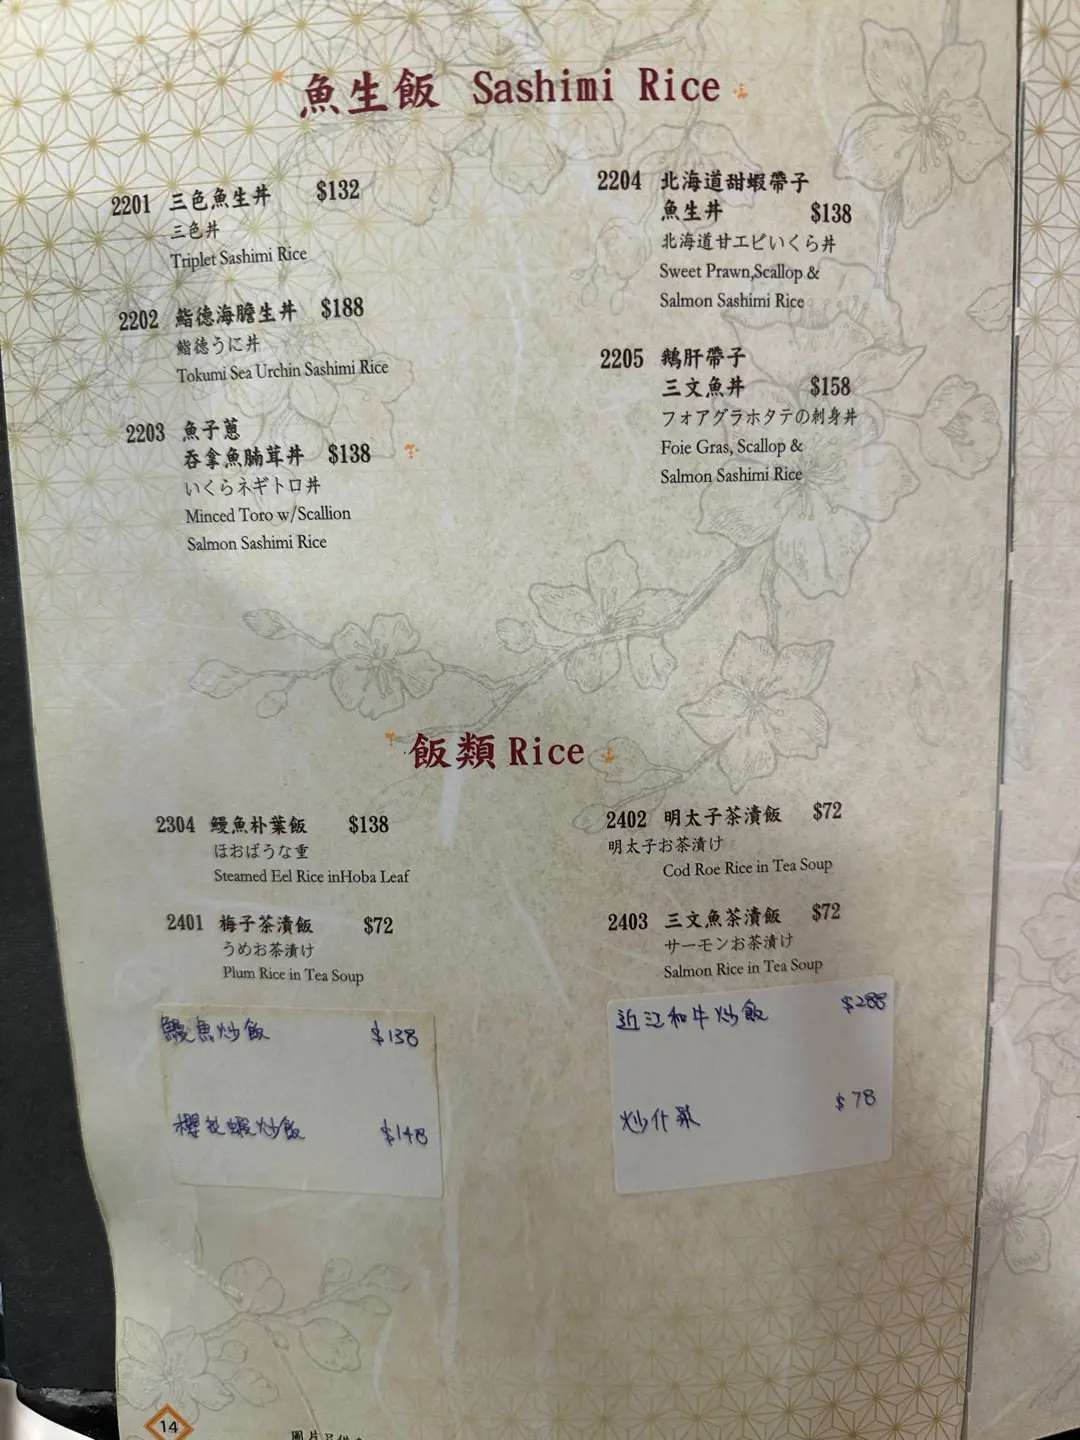 魚生飯 Sashimi Rice
2201 三色魚生丼 $132
三色丼
Triplet Sashimi Rice
2202 鮨德海膽生丼 $188
鮨徳うに丼
Tokumi Sea Urchin Sashimi Rice
2203 魚子蔥
吞拿魚腩茸丼 $138
いくらネギトロ丼
Minced Toro w/Scallion
Salmon Sashimi Rice
2204 北海道甜蝦帶子
魚生丼 $138
北海道甘エビいくら丼
Sweet Prawn,Scallop &
Salmon Sashimi Rice
2205 鵝肝帶子
三文魚丼 $158
フォアグラホタテの刺身丼
Foie Gras, Scallop &
Salmon Sashimi Rice
飯類 Rice
2304 鰻魚朴葉飯 $138
ほおばうな重
Steamed Eel Rice inHoba Leaf
2401 梅子茶漬飯 $72
うめお茶漬け
Plum Rice in Tea Soup
2402 明太子茶漬飯 $72
明太子お茶漬け
Cod Roe Rice in Tea Soup
2403 三文魚茶漬飯 $72
サーモンお茶漬け
Salmon Rice in Tea Soup
鰻魚炒飯 $138
櫻花蝦炒飯 $148
近江和牛炒飯 $288
炒什菜 $78
14